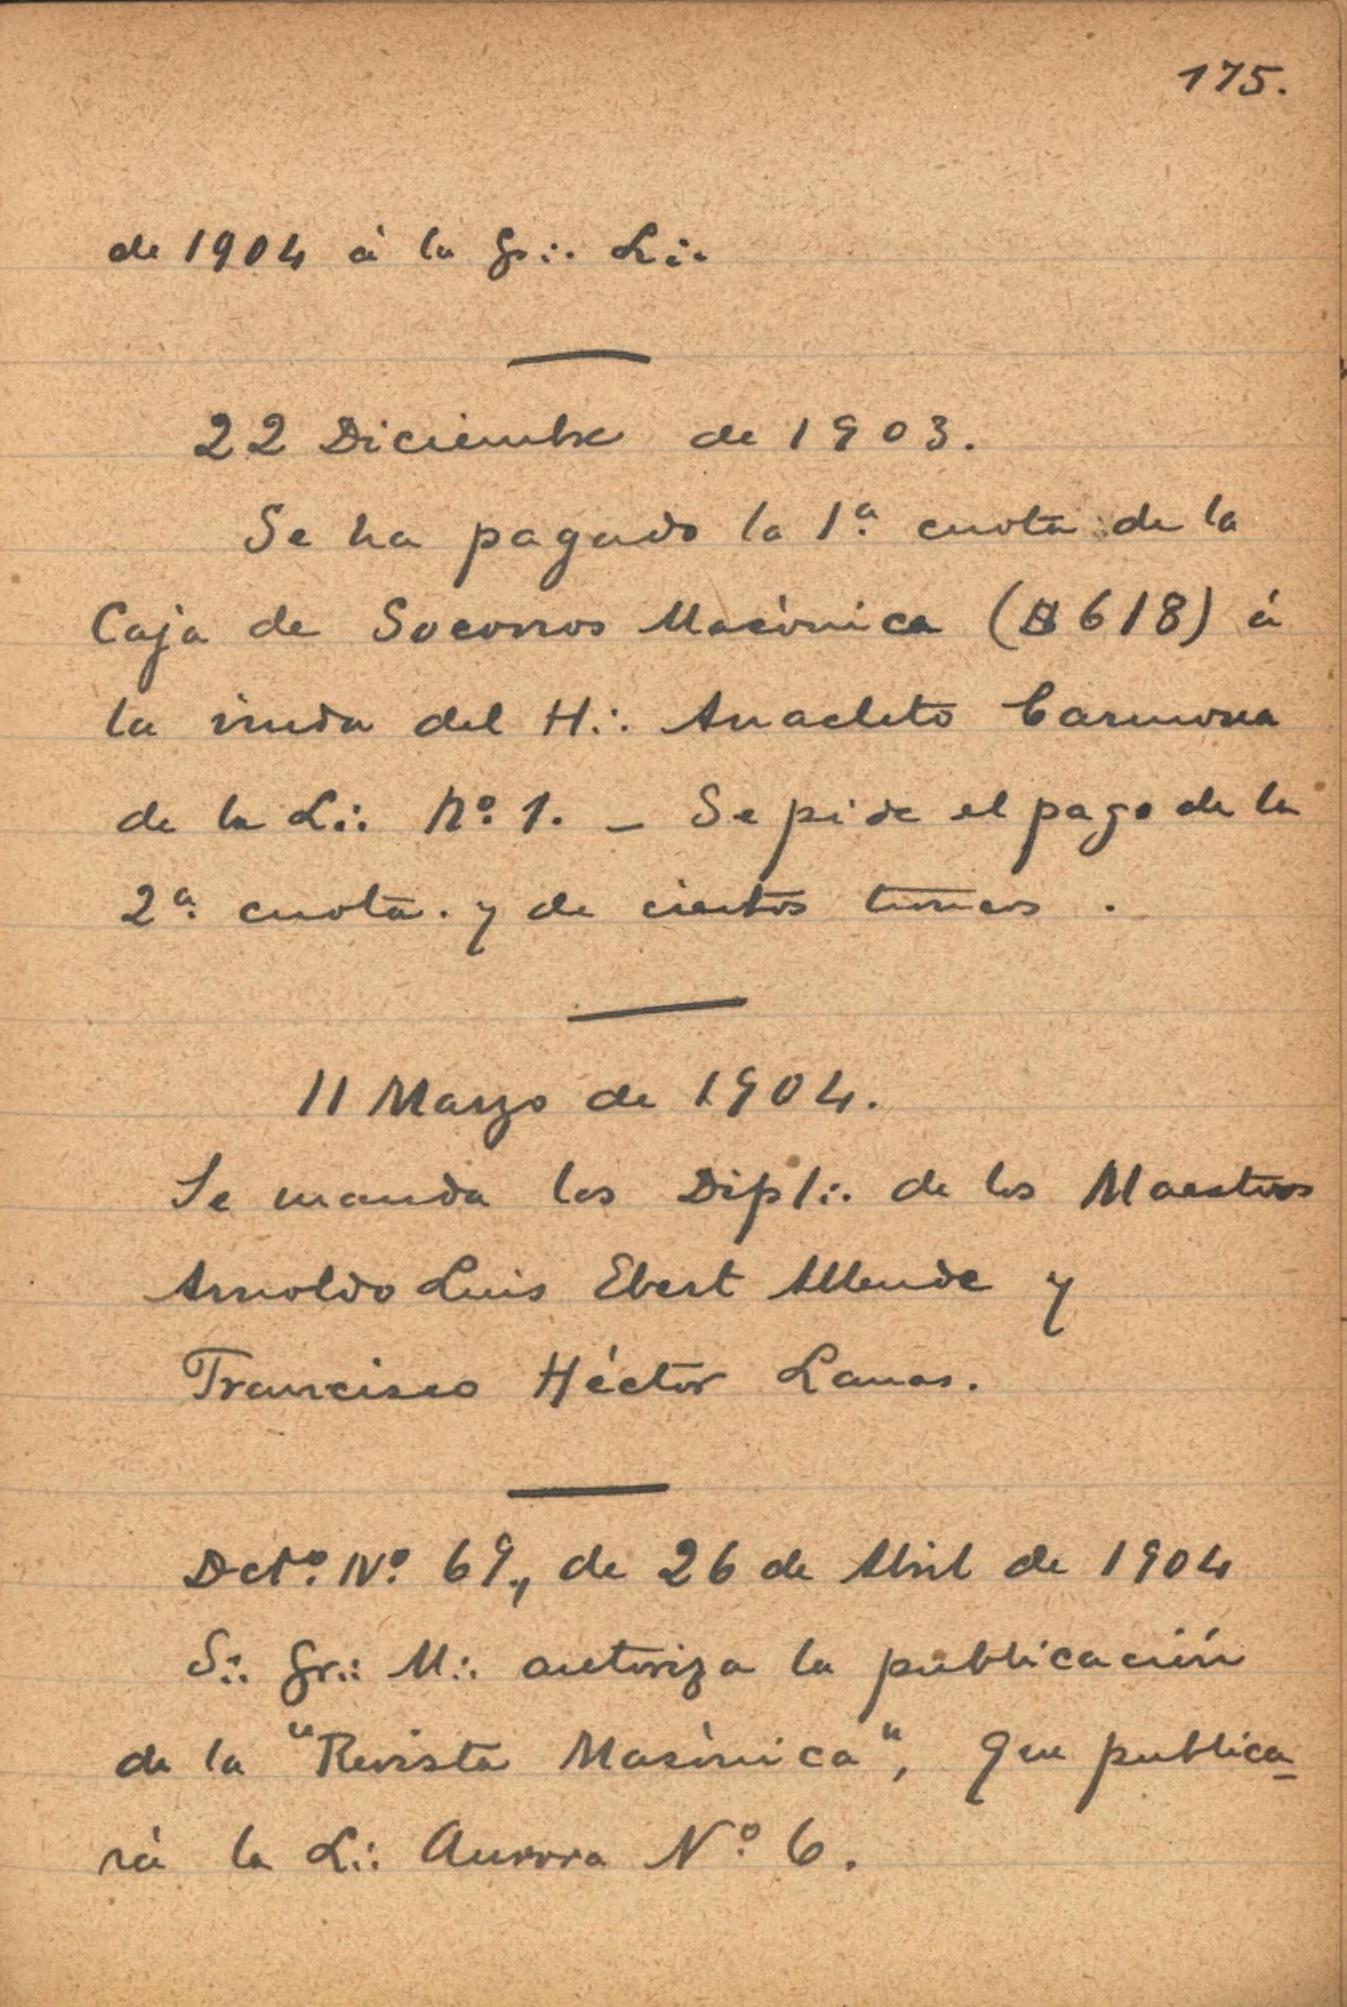 175.
de 1904 á la Gr∴ L∴
22 Diciembre de 1903.
Se ha pagado la 1ª cuota de la
Caja de Socorros Masónica ($ 618) á
la viuda del H∴ Anacleto Carmona
de la L∴ Nº 1. _ Se pide el pago de la
2ª cuota. y de ciertos
11 Marzo de 1904.
Se manda los Dipl∴ de los Maestros
Arnoldo Luis Ebert Allende y
Francisco Héctor Lanas.
Dctº. Nº. 69, de 26 de Abril de 1904
S∴ Gr∴ M∴ autoriza la publicación
de la "Revista Masónica", que publica_
rá la L∴ Aurora Nº 6.